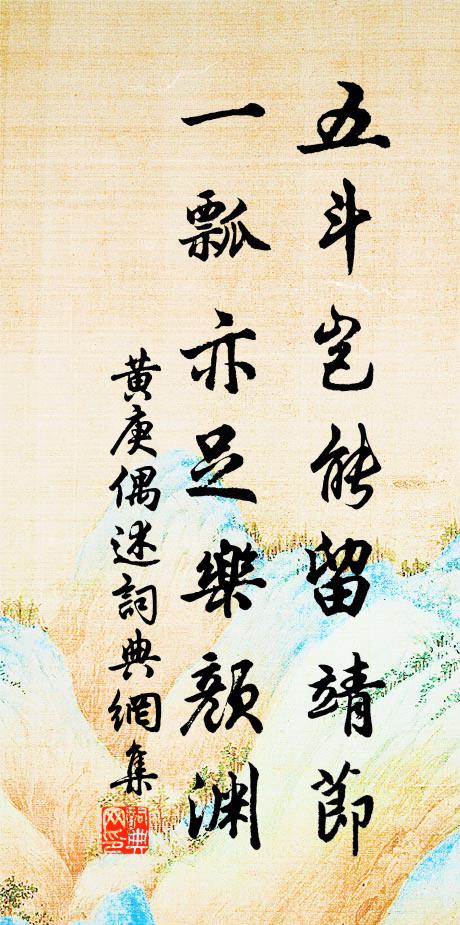 五斗岂能留靖節
一瓢亦足樂顏渊
黃庚偶述詞典網集
詞典
网印